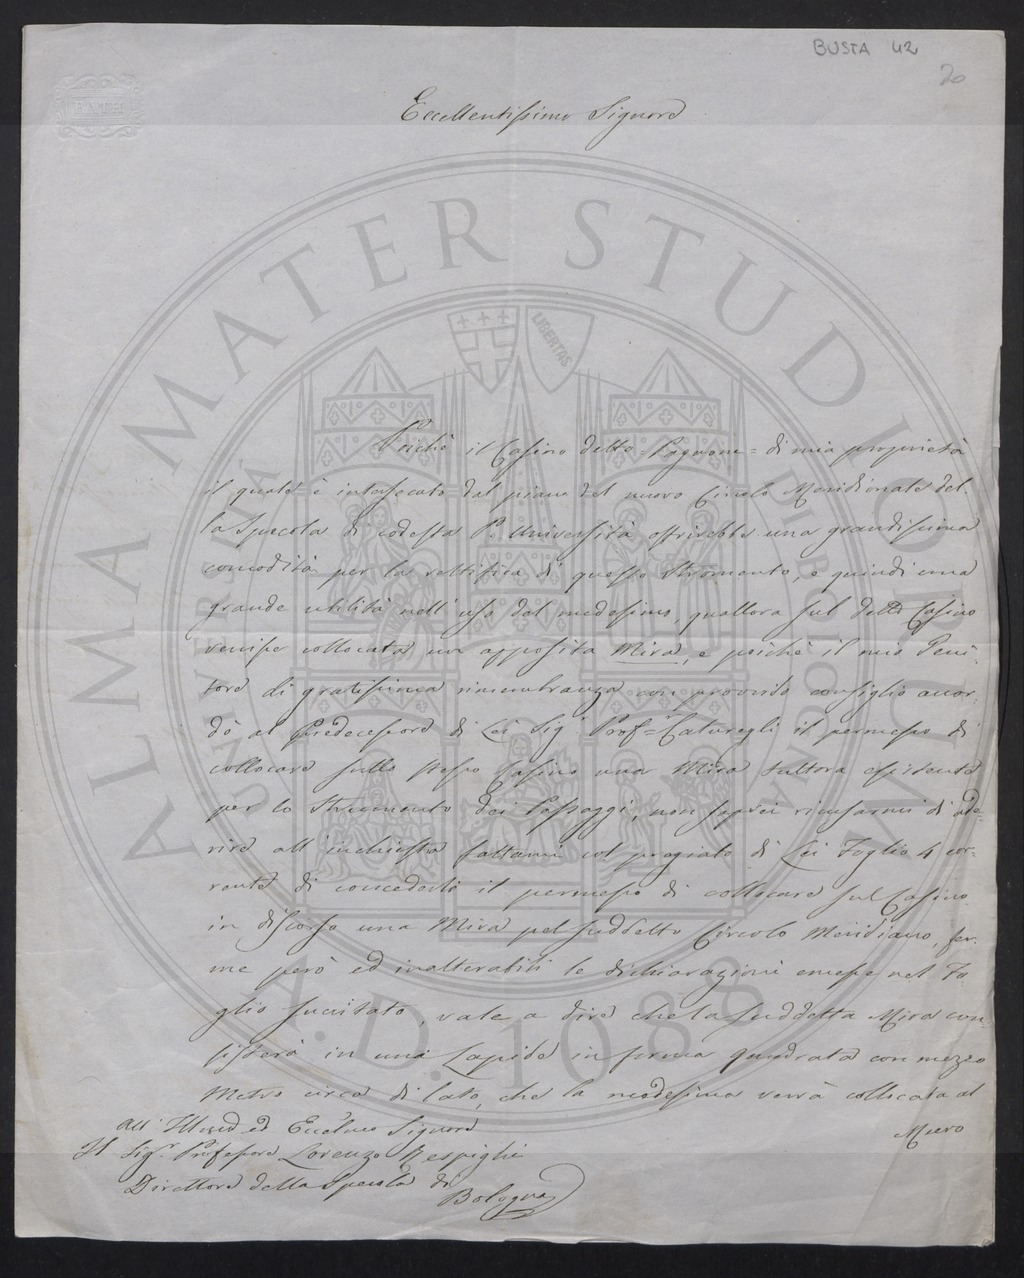 BUSTA 42
20
Eccellentissimo Signore
Poichè il Casino detto = Pignone = di mia proprietà
il quale è intersecato dal piano del nuovo Circolo Meridionale del-
la Specola di codesta P. Università offrirebbe una grandissima
comodità per la rettifica di questo Stromento, e quindi una
grande utilità nell' uso del medesimo, quallora sul detto Casino
venisse collocata un apposita Mira, e poichè il mio Geni-
tore di gratissima rimembranza con provvido consiglio accor-
dò al Predecessore di Lei Sig.r Prof.r Caturegli il permesso di
collocare sullo stesso Casino una Mira tuttora esistente
per lo Strumento dei Passaggi, non saprei ricusarmi di ade-
rire all' inchiesta fattami col pregiato di Lei Foglio 4 cor-
rente di concederle il permesso di collocare sul Casino
in discorso una Mira pel suddetto Circolo Meridiano, fer-
me però ed inalterabili le dichiarazioni emesse nel Fo-
glio succitato, vale a dire che la suddetta Mira con-
sisterà in una Lapide in forma quadrata con mezzo
Metro circa di lato, che la medesima verrà collocata al
Muro
All' Illmo ed Eccelmo Signore
Il Sig.r Professore Lorenzo Respighi
Direttore della Specola di
Bologna
ALMA MATER STUDIORUM
UNIVERSITÀ DI BOLOGNA
LIBERTAS
A.D. 1088